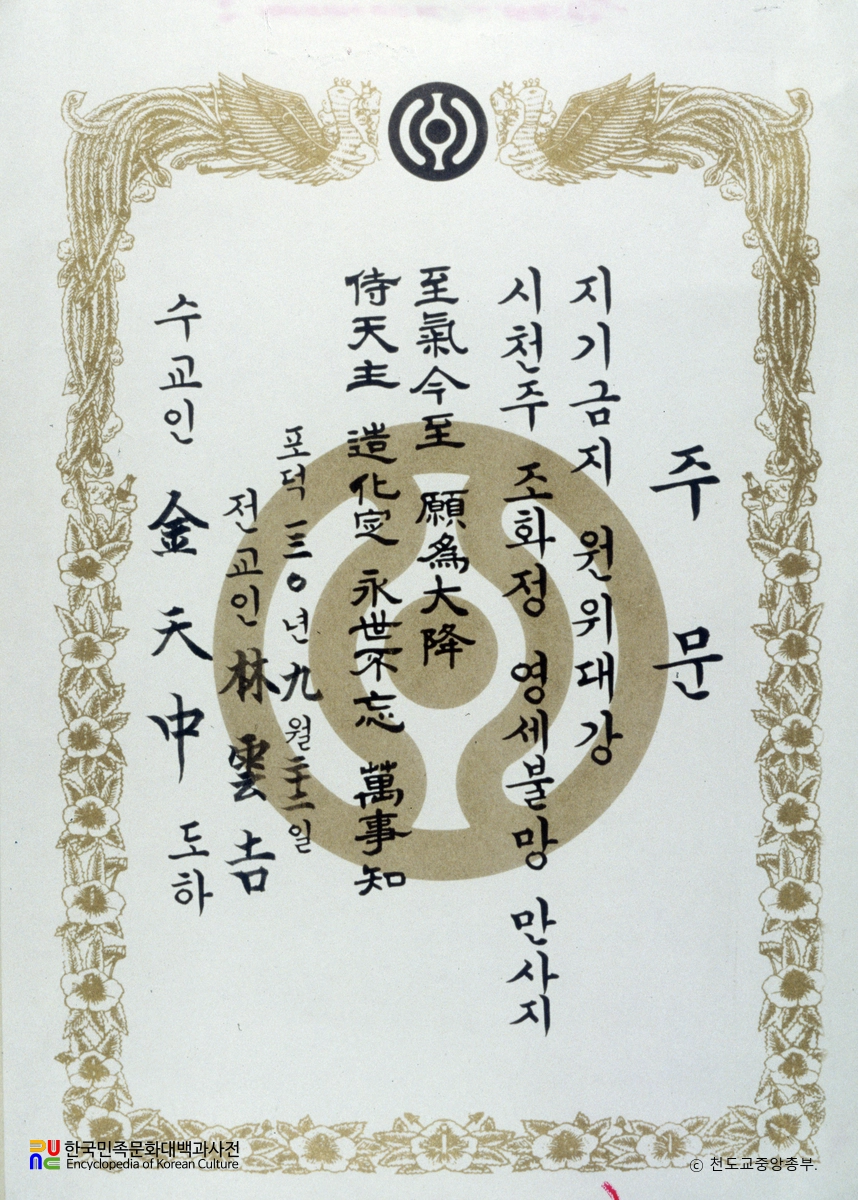 주문
지기금지 원위대강
시천주 조화정 영세불망 만사지
至氣今至 願為大降
侍天主 造化定 永世不忘 萬事知
포덕 一三〇년 九월 二十二일
전교인 林雲吉
수교인 金天中 도하
한국민족문화대백과사전
Encyclopedia of Korean Culture
© 천도교중앙총부.